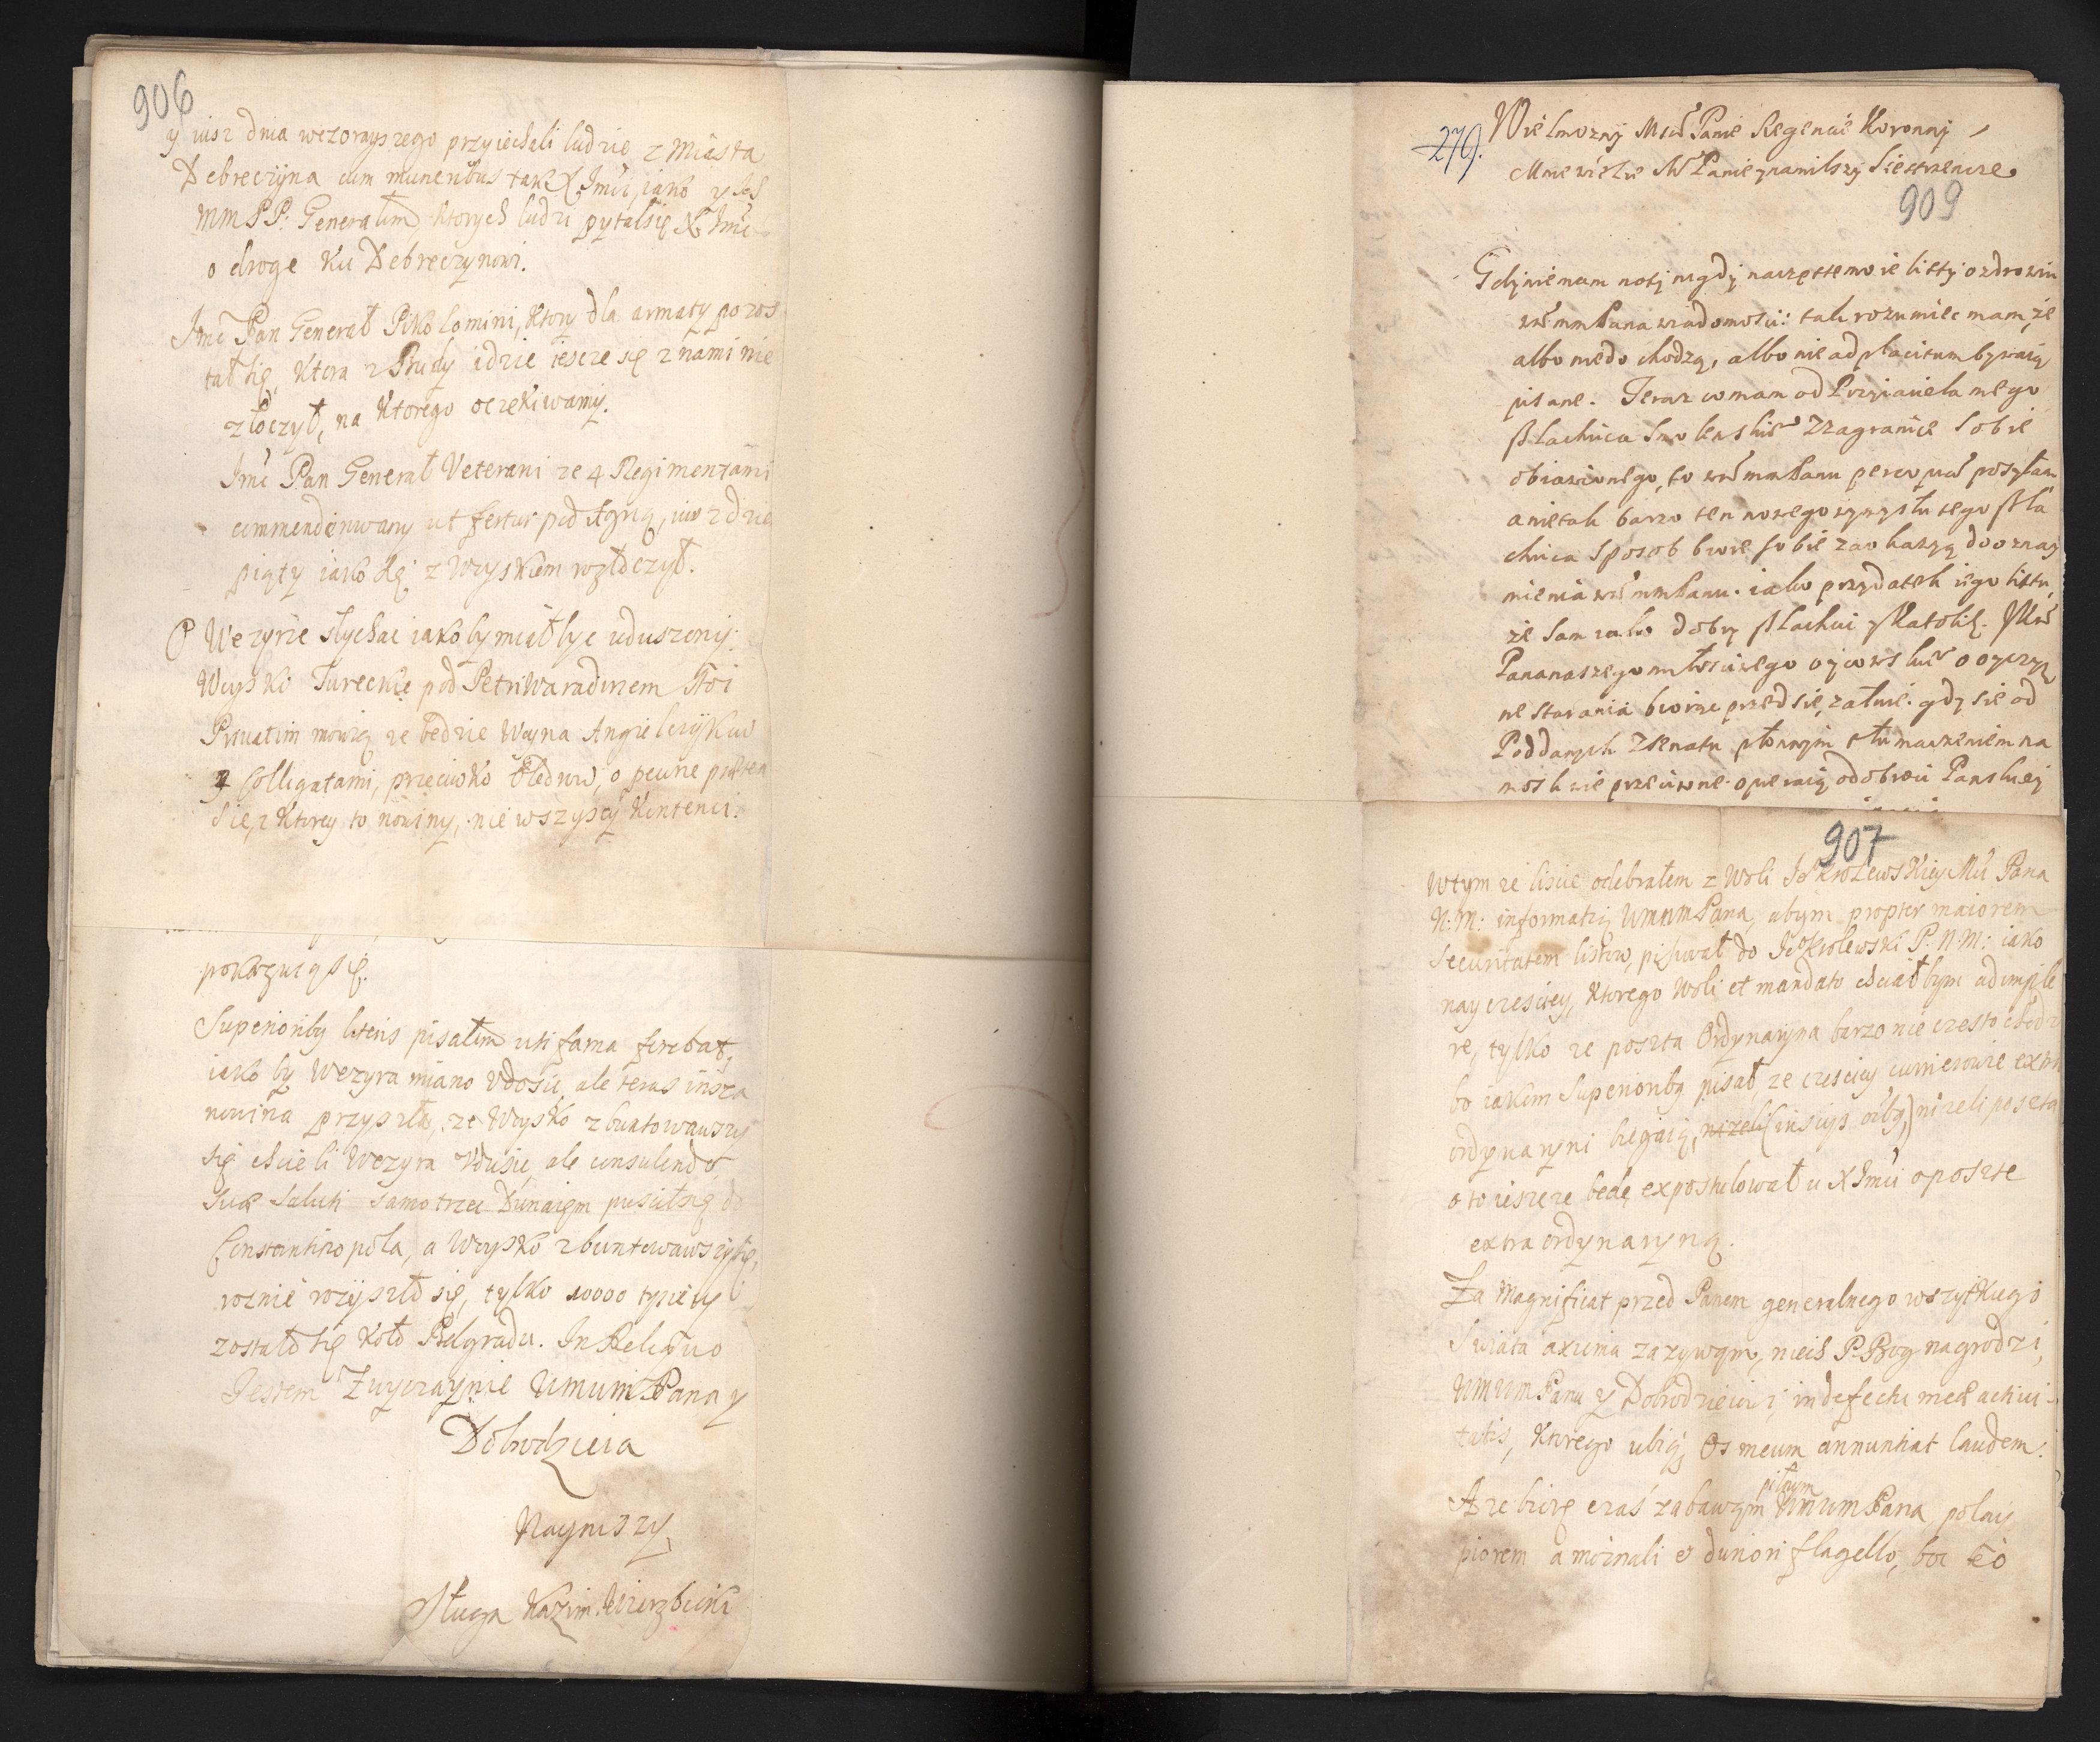 906
y iusz dnia wczorayszego przyiechali ludzie z Miasta
Debreczyna cum muneribus tak X. Jmci, iako y Ich
MMPP: Generałom, ktorych ludzi pytał się X Jmc
o droge ku Debreczynowi.
Jmc Pan Generał Pikolomini, ktory dla armaty pozos
tał się, ktora z Budy idzie ieszcze się z nami nie
złączył, na ktorego oczekiwamy.
Jmc Pan Generał Veterani ze 4 Regimentami
commenderowany ut fertur pod Agrią, iusz dzie
piąty iako się z Woyskiem rozłączył.
O Wezyrze słychac iakoby miał byc uduszony.
Woysko Tureckie pod Petriwaradinem stoi
Privatim mowią ze bedzie Woyna Angielczykow
y Colligatami, przeciwko Oledrow, o pewne
sie, z ktorey to nowiny, nie wszyscy kontenci.
pokazuią się.
Superioribus literis pisałem uti fama ferebat,
iako by Wezyra miano Udusic, ale teras insza
nowina przyszła, ze Woysko zbuntowawszy
się chcieli Wezyra Udusic, ale consulendo
suae saluti samotrzec Dunaiem puscił się do
Constantinopola, a Woysko zbuntowawszy się,
roznie rozyszło się, tylko 10000 tysięcy
zostało się koło Belgradu. In Reliquo
Jestem Zwyczaynie UMMM Pana y
Dobrodzieia
Naynizszy
Sługa Kazim. Wierzbicki
279.
Wielmozny Mci Panie Regencie Koronny,
Mnie wielce Mci Panie y namilszy Siestrzencze
909
Gdy nie mam noty nigdy na częste moie listy o zdrowiu
WM mm Pana wiadomosci: tak rozumiec mam, że
albo nie dochodzą, albo nie ad placitum bywaią
pisane. Teraz co mam od Przyiaciela mego
szlachcica Smolenskie° Zzagranice sobie
obiawionego, to WM mm Panu posyłam
a nie tak barzo ten nowego tego szla
chcica sposob biore sobie za okazyą do oznay
mienia WM mm Panu. iako przydatek iego listu,
że sam iako dobry szlachcic y Katolik. JKM
Pana naszego miłosciwego oycowskie° o oyczyz
ne starania biorąc przed się, załuie. gdy sie od
Poddanych Zsenatu płonnym tłumaczeniem na
Moskwie przeciwne opieraią dobroci Panskiey
907
W tym ze liscie odebrałem z Woli Jo Krolewskiey Mci Pana
N: M: informatią UMMM Pana, abym propter maiorem
securitatem listow, pisywał do Jo Krolewski P: N: M: iako
nayczesciey, ktorego Woli et mandato chciał bym adimple
re, tylko ze poszta Ordynaryna barzo nie czesto chodzi
bo iakom Superioribus pisał, ze czesciey curierowie extra
ordynaryni biegaią, nizeli (in suis orbis,) nizeli poszta
o to ieszcze bede expostulował u X Jmci o poszte
extraordynaryną.
Za Magnificat przed Panem generalnego wszytkiego
Swiata axcima zazywam, niech P. Bog nagrodzi,
UMMM Panu y Dobrodzieiowi, in defectu meae activi-
tatis, ktorego ubiq; Os meum annuntiat laudem.
A ze biorę czas zabawom pilnym UMMM Pana, polnij
piorem a moznali et duriori flagello, boc to